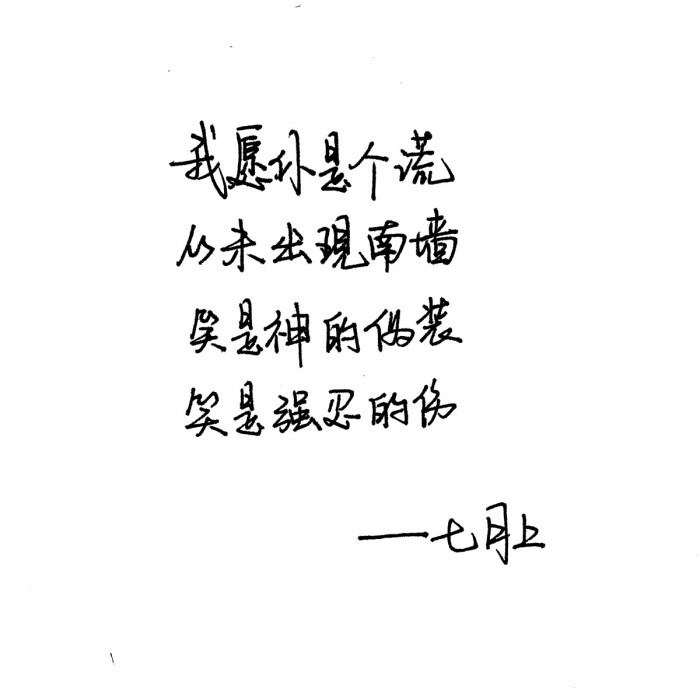 我愿你是个谎
从未出現南墙
笑是神的伪装
笑是强忍的伤
——七月上